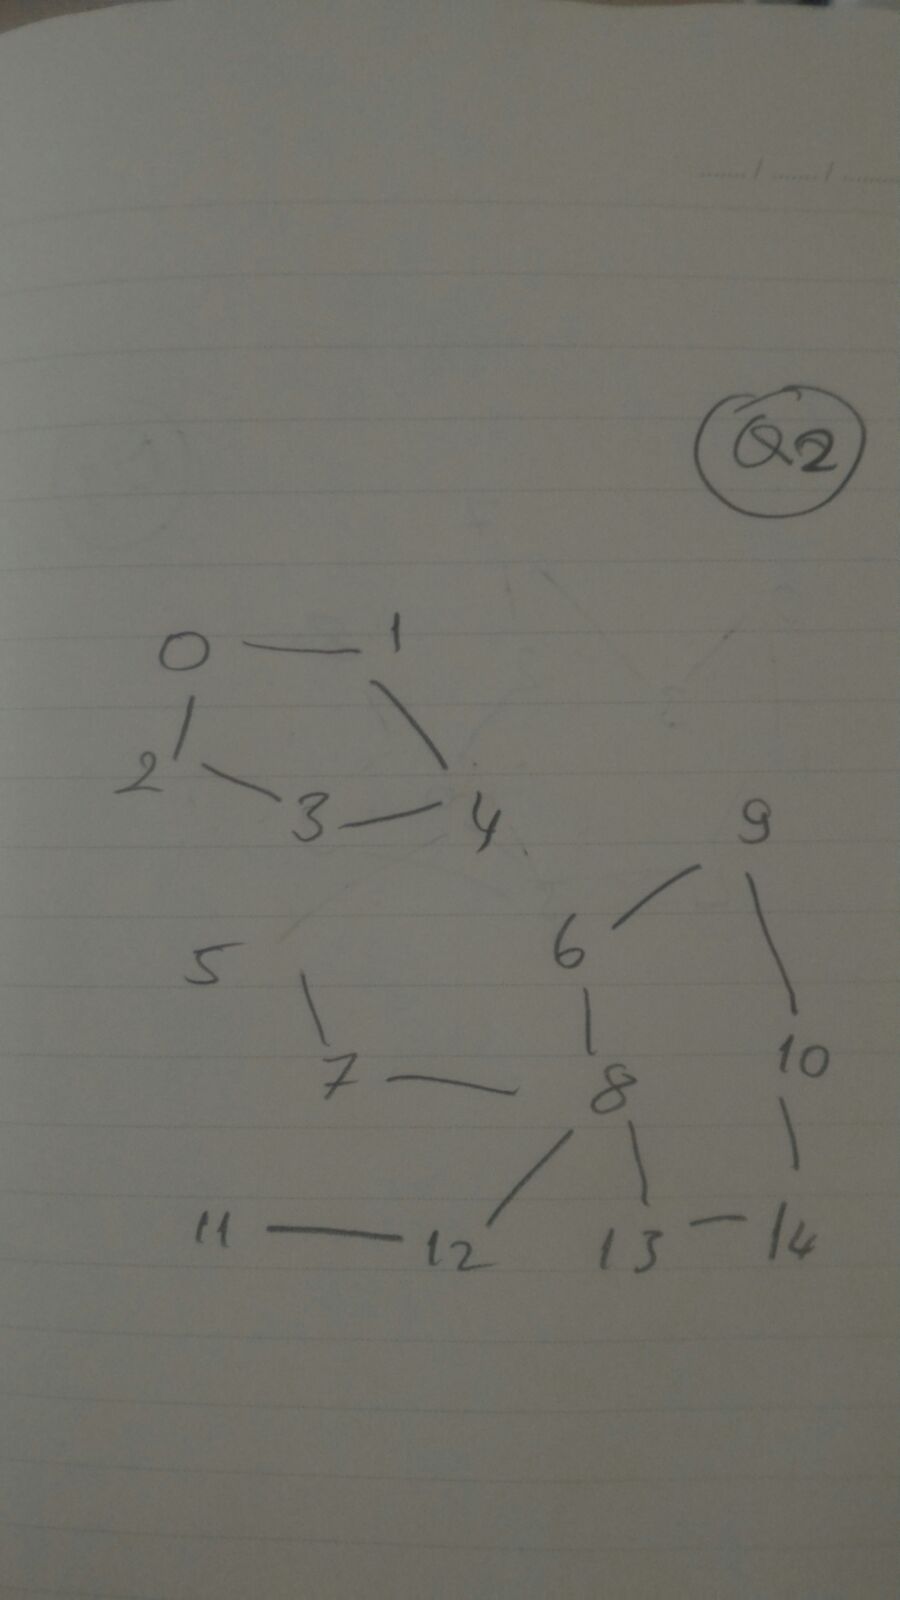 Q2
0 1
2 3 4
9
5 6
7 8 10
11 12 13 14